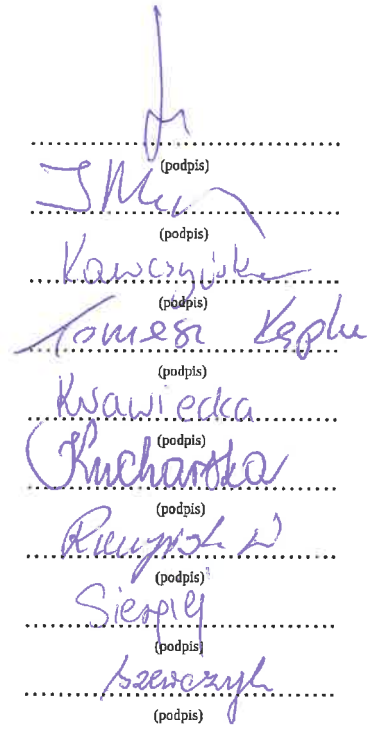 (podpis)
(podpis)
Kawczyńska
(podpis)
Tomasz Kępka
(podpis)
Krawiecka
(podpis)
Kucharska
(podpis)
(podpis)
Sierpień
(podpis)
Szewczyk
(podpis)